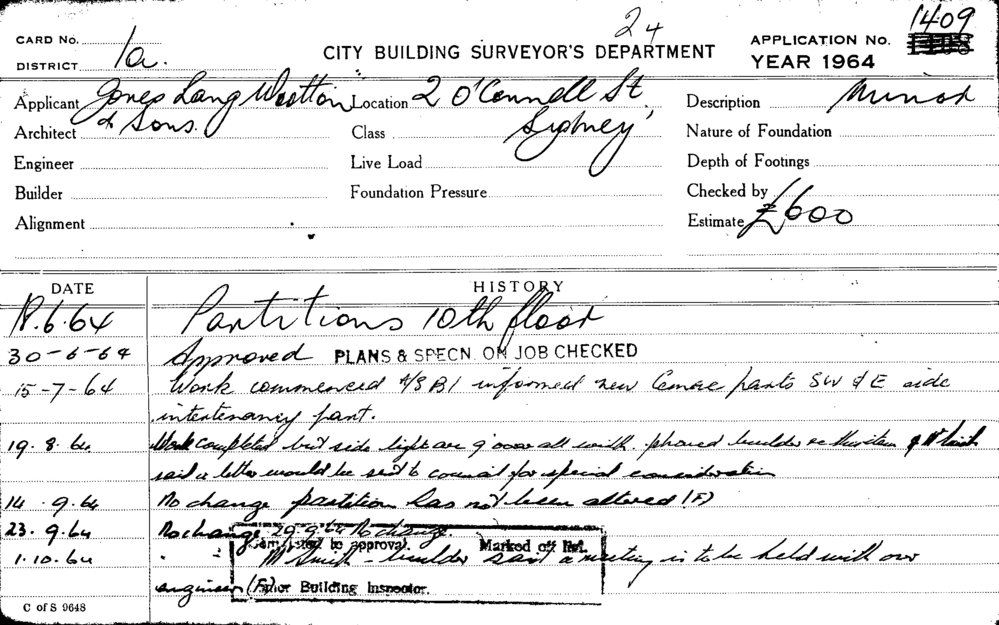 24
1409
CARD No.
DISTRICT 1a.
CITY BUILDING SURVEYOR'S DEPARTMENT
APPLICATION No.
YEAR 1964
Applicant Jones Lang Wootton & Sons.
Location 2 O'Connell St, Sydney
Description Minor
Architect
Class
Nature of Foundation
Engineer
Live Load
Depth of Footings
Builder
Foundation Pressure
Checked by
Alignment
Estimate £600
DATE
HISTORY
18.6.64 Partitions 10th floor
30-6-64 Approved PLANS & SPECN. ON JOB CHECKED
15-7-64 Work commenced informed new parts SW & E side
intertenancy part.
19.8.64 Work completed but side light are over all width. phoned builder re
said a letter would be sent to council for special consideration
14.9.64 No change partition has not been altered (F)
23.9.64 No change 29.9.64 No change.
Completed to approval. Marked off list.
1.10.64 Mr Smith - builder said a meeting is to be held with our
engineer (F)
Building Inspector.
C of S 9648